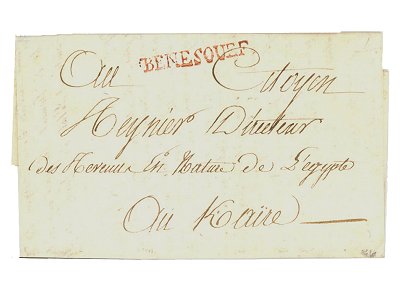 BENESOUEF
Au Citoyen
Reynier Directeur
des Revenus En Nature de L'egypte
Au Kaire